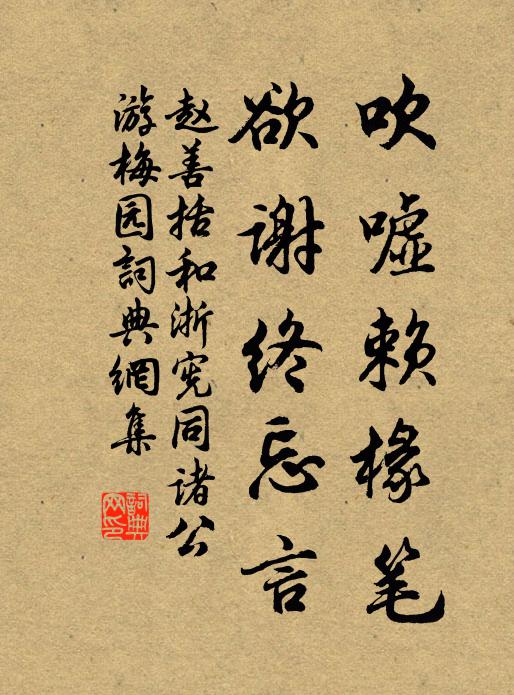 吹嘘赖椽笔
欲谢终忘言
赵善括和浙宪同诸公
游梅园詞典網集
詞典
网印